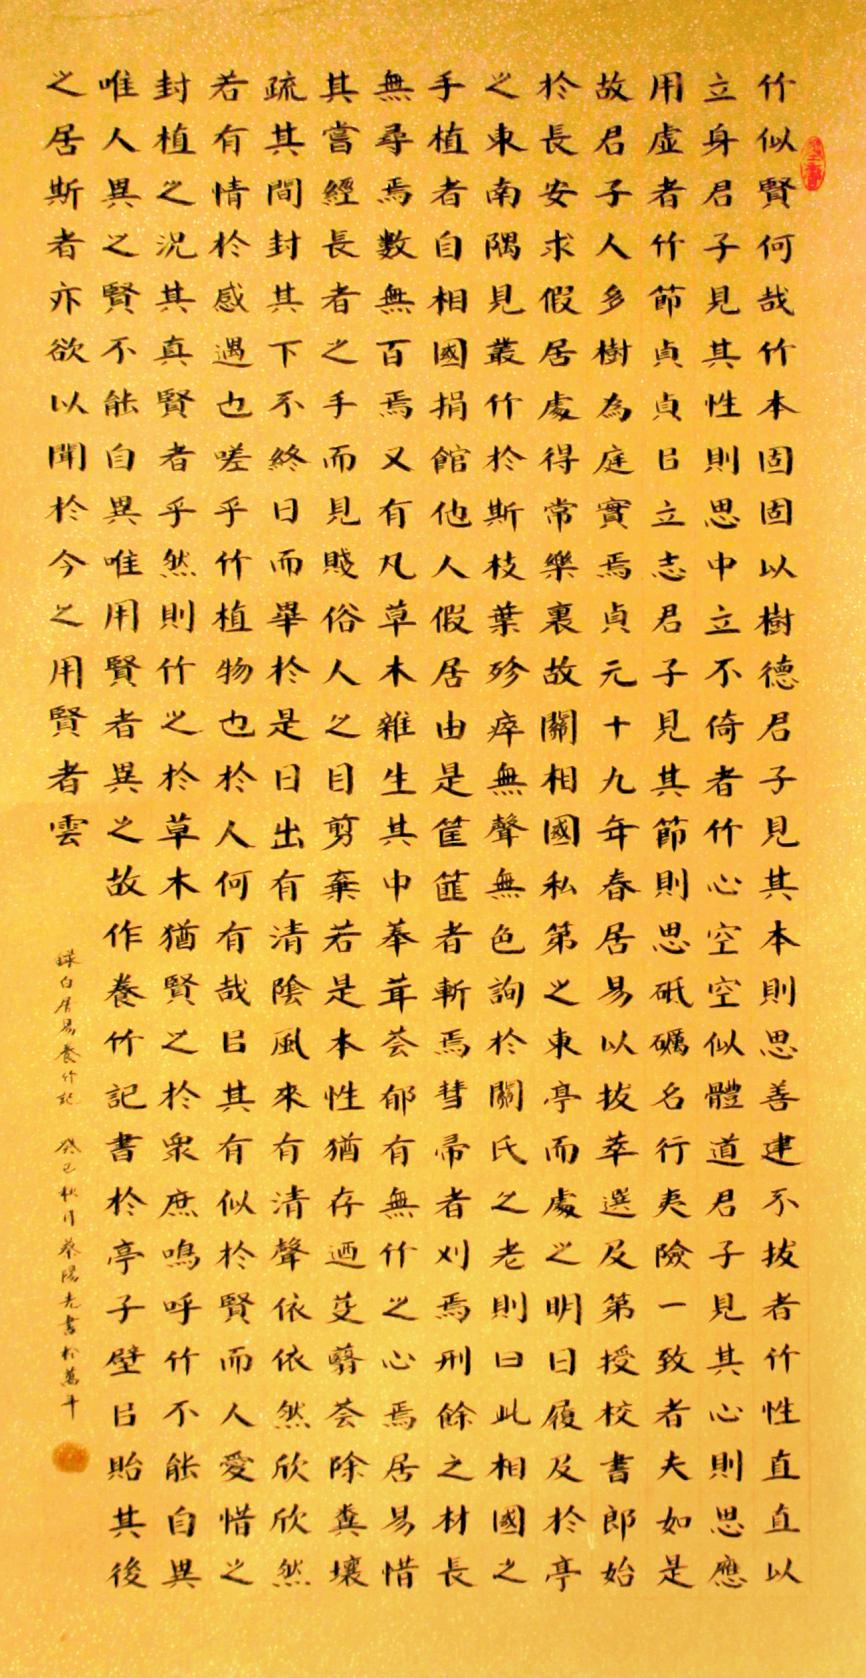 竹似賢何哉竹本固固以樹德君子見其本則思善建不拔者竹性直直以
立身君子見其性則思中立不倚者竹心空空似體道君子見其心則思應
用虛者竹節貞貞㠯立志君子見其節則思砥礪名行夷險一致者夫如是
故君子人多樹為庭實焉貞元十九年春居易以拔萃選及第授校書郎始
於長安求假居處得常樂裏故關相國私第之東亭而處之明日履及於亭
之東南隅見叢竹於斯枝葉殄瘁無聲無色詢於關氏之老則曰此相國之
手植者自相國捐館他人假居由是筐篚者斬焉彗帚者刈焉刑餘之材長
無尋焉數無百焉又有凡草木雜生其中菶茸荟郁有無竹之心焉居易惜
其嘗經長者之手而見賤俗人之目剪棄若是本性猶存迺芟蘙荟除糞壤
疏其間封其下不終日而畢於是日出有清陰風來有清聲依依然欣欣然
若有情於感遇也嗟乎竹植物也於人何有哉㠯其有似於賢而人愛惜之
封植之況其真賢者乎然則竹之於草木猶賢之於衆庶鳴呼竹不能自異
唯人異之賢不能自異唯用賢者異之故作養竹記書於亭子壁㠯貽其後
之居斯者亦欲以聞於今之用賢者雲
錄白居易養竹記 癸巳秋月蔡陽光書於